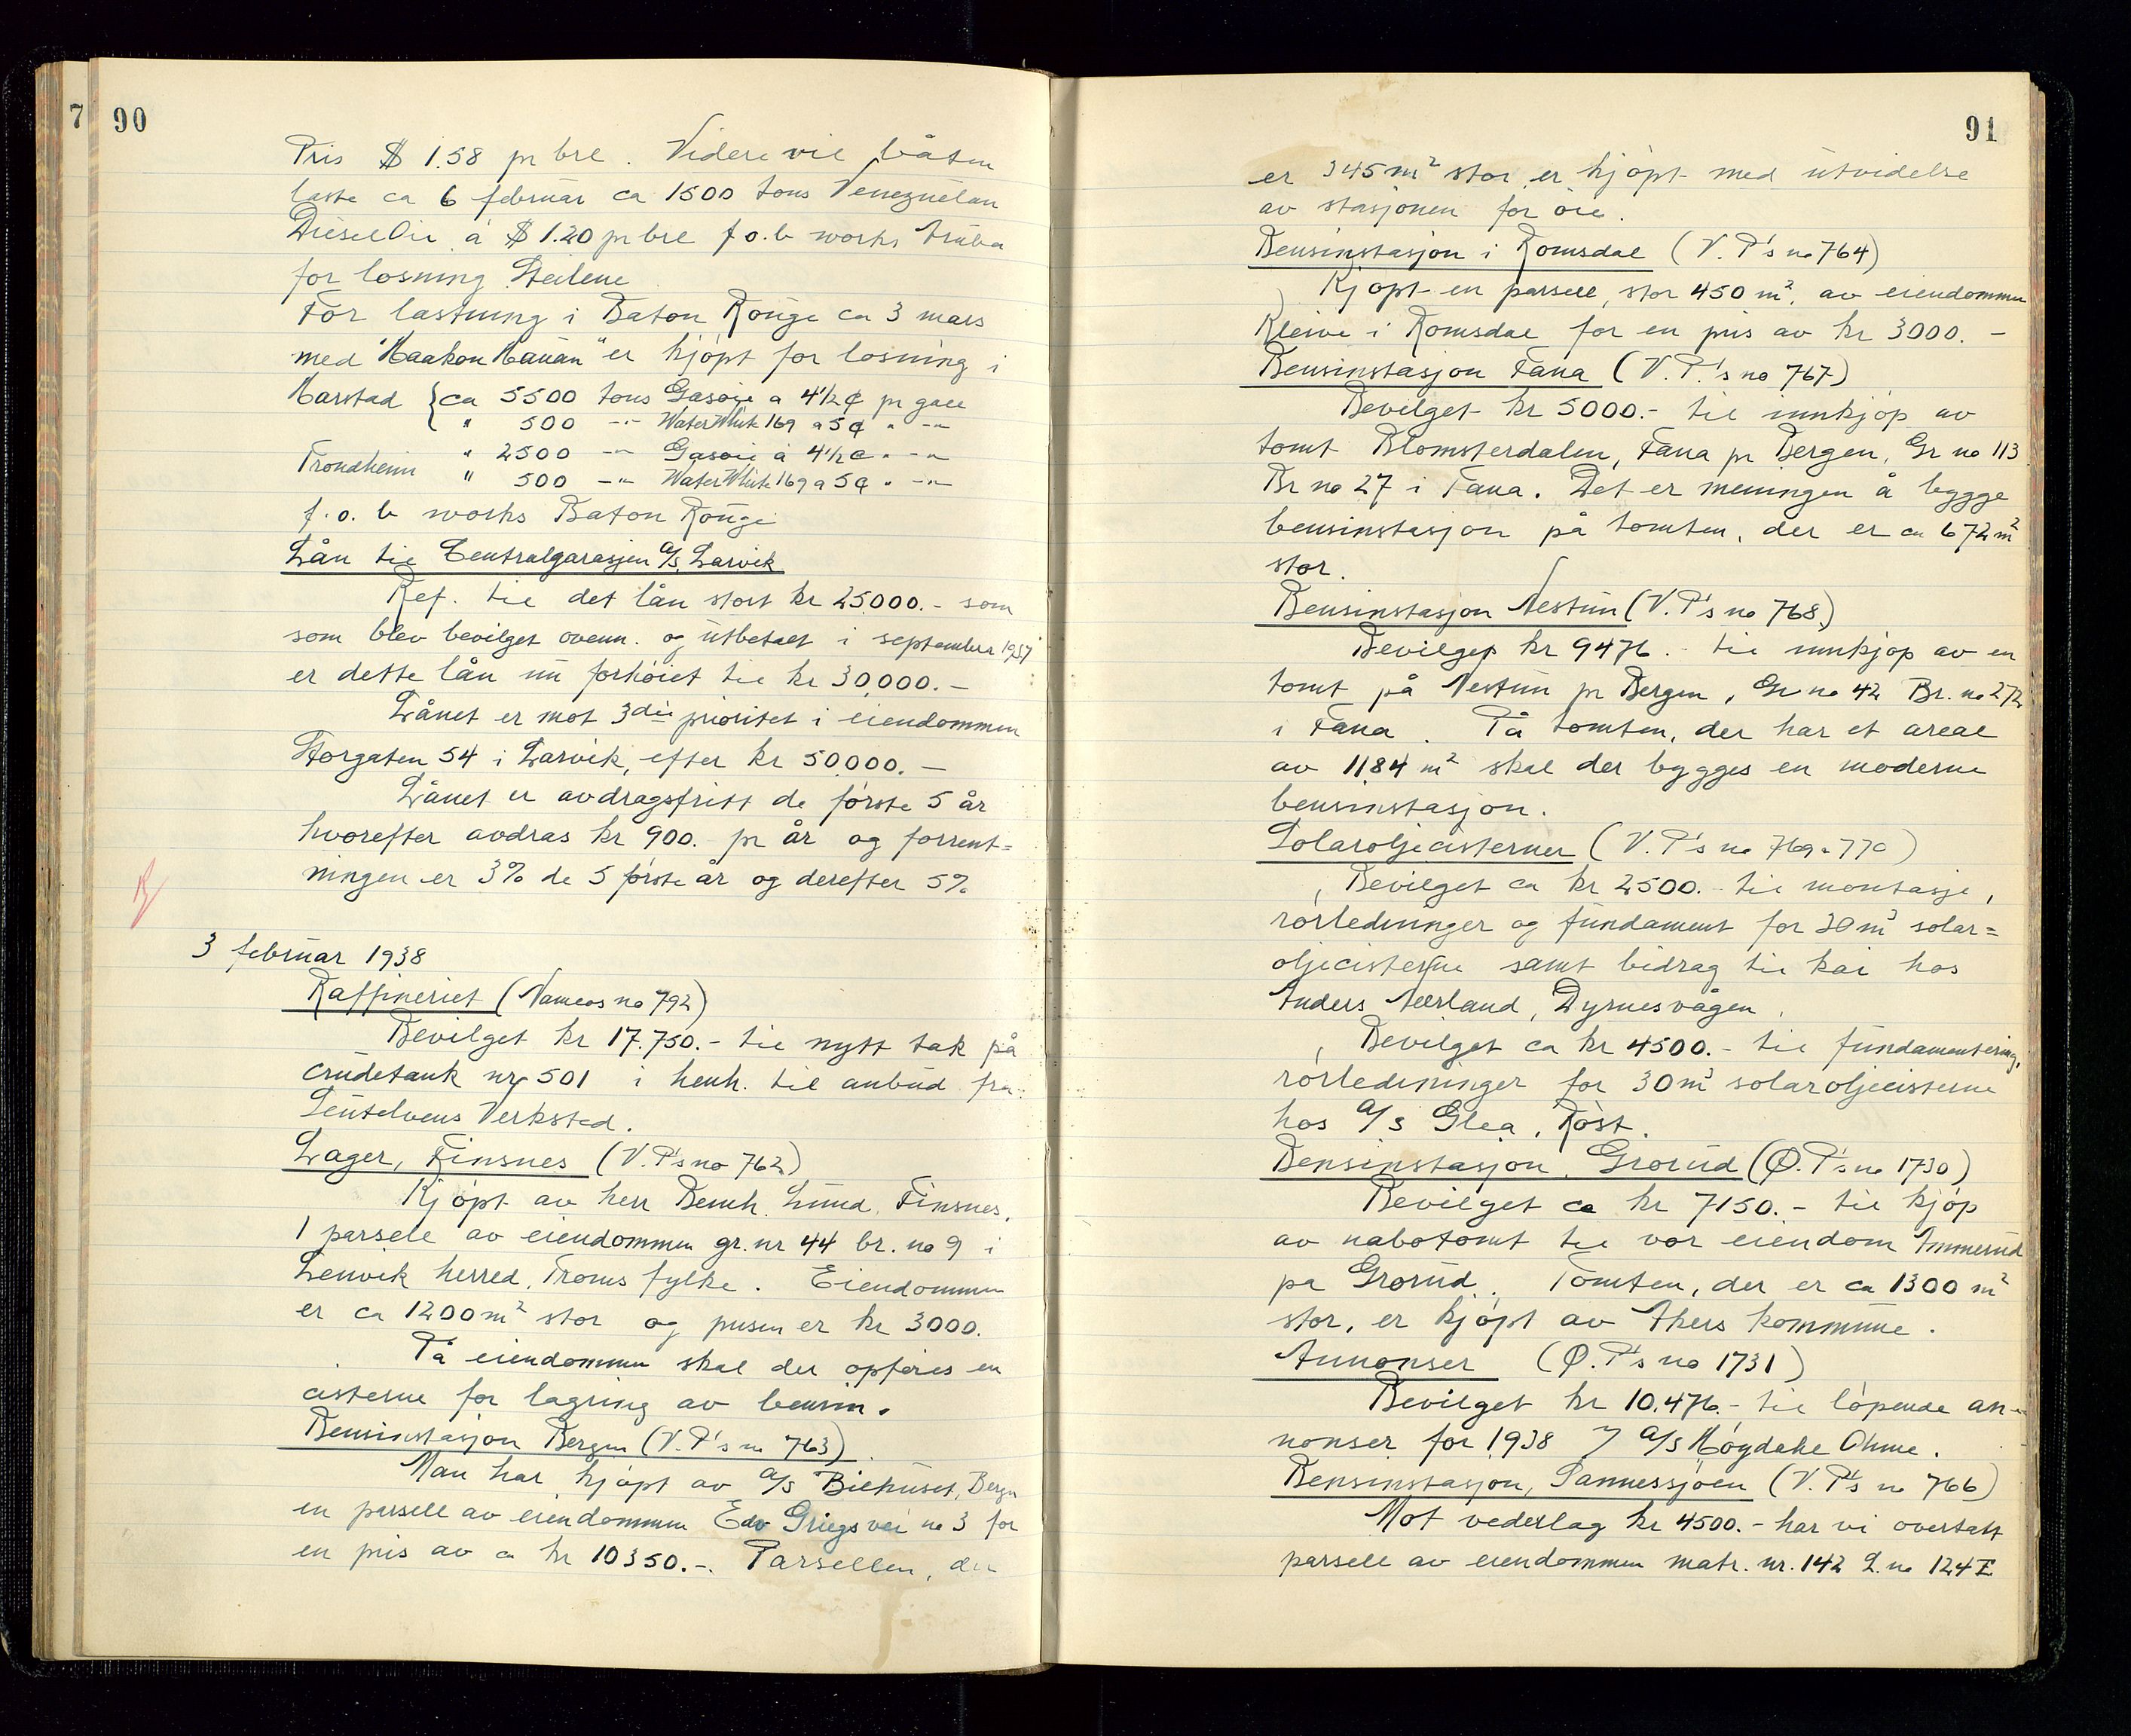 7 90
Pris $ 1.58 pr brl. Videre vil båten
laste ca 6 februar ca 1500 tons Venezuelan
DieselOil á $ 1.20 pr brl f.o.b works Aruba
for losning Steilene
For lastning i Baton Rouge ca 3 mars
med "Haakon Hauan" er kjöpt for losning i
Harstad { ca 5500 tons Gasoije a 4 1/2 ¢ pr gall
" 500 -"- WaterWhite 169 a 5 ¢ " -"-
" 2500 -"- Gasoil á 4 1/2 ¢ " -"-
Trondheim " 500 -"- WaterWhite 169 a 5 ¢ " -"-
f.o.b works Baton Rouge
Lån til Centralgarasjen A/S, Larvik
Ref. til det lån stort kr 25,000.- som
som blev bevilget ovenn. og utbetalt i september 1937
er dette lån nu forhöiet til kr 30,000.-
Lånet er mot 3die prioritet i eiendommen
Storgaten 54 i Larvik, efter kr 50,000.-
Lånet er avdragsfritt de förste 5 år
hvorefter avdras kr 900. pr år og forrent=
ningen er 3% de 5 förste år og derefter 5%
3 februar 1938
Raffineriet (Vameos no 792)
Bevilget kr 17.750.- til nytt tak på
crudetank nr 501 i henh. til anbud fra
Lentelvens Verksted.
Lager, Finsnes (V.P's no 762)
Kjöpt av herr Bernh. Lund, Finsnes,
1 parsell av eiendommen gr. nr 44 br. no 9 i
Lenvik herred, Troms fylke. Eiendommen
er ca 1200 m² stor og prisen er kr 3000.
På eiendommen skal der opföres en
cisterne for lagring av bensin.
Bensinstasjon Bergen (V.P's no 763)
Man har kjöpt av A/S Bilhuset, Bergen
en parsell av eiendommen Edv Griegs vei no 3 for
en pris av ca kr 10350.-. Parsellen, der
91
er 345 m² stor, er kjöpt med utvidelse
av stasjonen for öie.
Bensinstasjon i Romsdal (V.P's no 764)
Kjöpt en parsell, stor 450 m², av eiendommen
Kleive i Romsdal for en pris av kr 3000.-
Bensinstasjon Fana (V.P.'s no 767)
Bevilget kr 5000.- til innkjöp av
tomt Blomsterdalen, Fana pr Bergen, Gr no 113
Br no 27 i Fana. Det er meningen å bygge
bensinstasjon på tomten, der er ca 672 m²
stor.
Bensinstasjon Nestun (V.P's no 768.)
Bevilget kr 9476.- til innkjöp av en
tomt på Nestun pr Bergen, Gr no 42 Br. no 272
i Fana. På tomten, der har et areal
av 1184 m² skal der bygges en moderne
bensinstasjon.
Solaroljecisterner (V.P's no 769-770)
Bevilget ca kr 2500.- til montasje,
rörledninger og fundament for 30 m³ solar=
oljecisterne samt bidrag til kai hos
Anders Nerland, Dyrnesvågen.
Bevilget ca kr 4500.- til fundamentering,
rörledninger for 30 m³ solaroljecisterne
hos A/S Glea, Röst.
Bensinstasjon, Grorud (Ø.P's no 1730)
Bevilget ca kr 7150.- til kjöp
av nabotomt til vor eiendom Ammerud
på Grorud. Tomten, der er ca 1300 m²
stor, er kjöpt av Akers kommune.
Annonser (Ø.P's no 1731)
Bevilget kr 10,476.- til löpende an-
nonser for 1938 i A/S Höydahl Ohme.
Bensinstasjon, Sannessjöen (V.P's no 766)
Mot vederlag kr 4500.- har vi overtatt
parsell av eiendommen matr. nr. 142 L. no 124 I